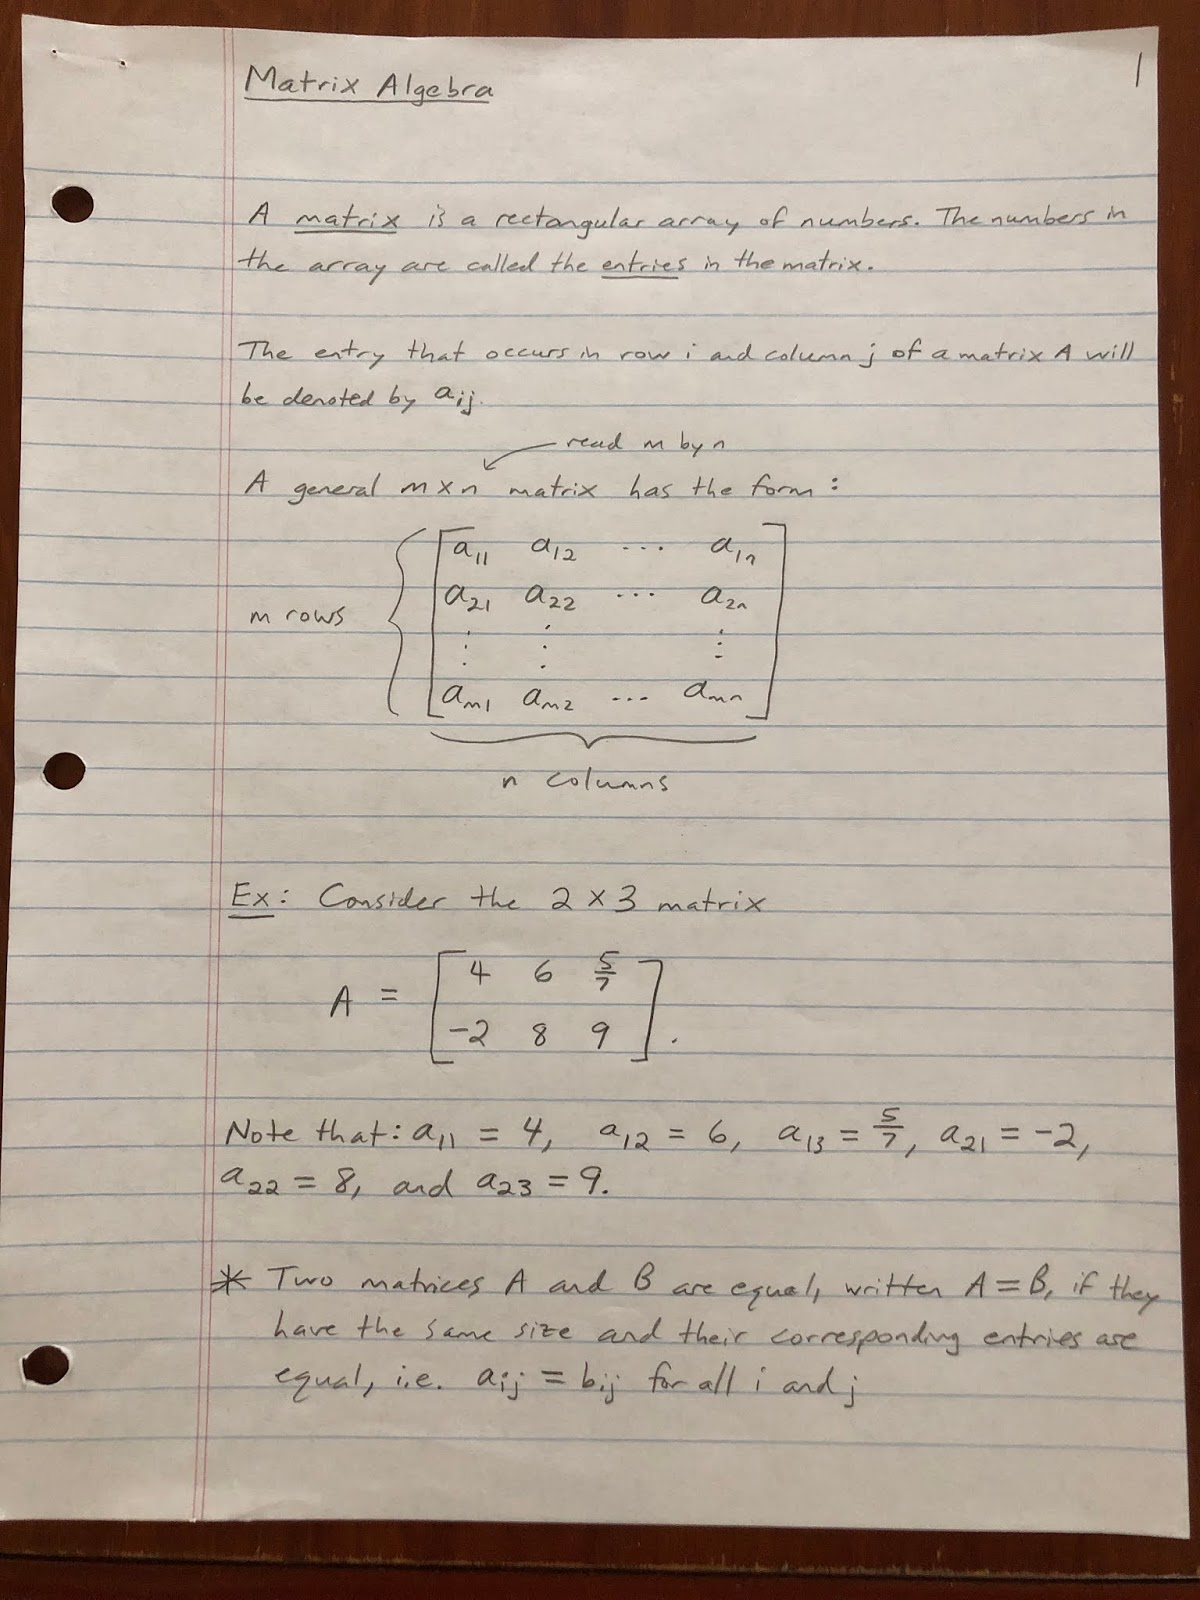 Matrix Algebra
1
A matrix is a rectangular array of numbers. The numbers in
the array are called the entries in the matrix.
The entry that occurs in row i and column j of a matrix A will
be denoted by aij.
read m by n
A general m×n matrix has the form:
a11 a12 ... a1n
a21 a22 ... a2n
m rows
⋮ ⋮ ⋮
am1 am2 ... amn
n columns
Ex: Consider the 2×3 matrix
A = [4 6 5/7
-2 8 9].
Note that: a11 = 4, a12 = 6, a13 = 5/7, a21 = -2,
a22 = 8, and a23 = 9.
* Two matrices A and B are equal, written A = B, if they
have the same size and their corresponding entries are
equal, i.e. aij = bij for all i and j